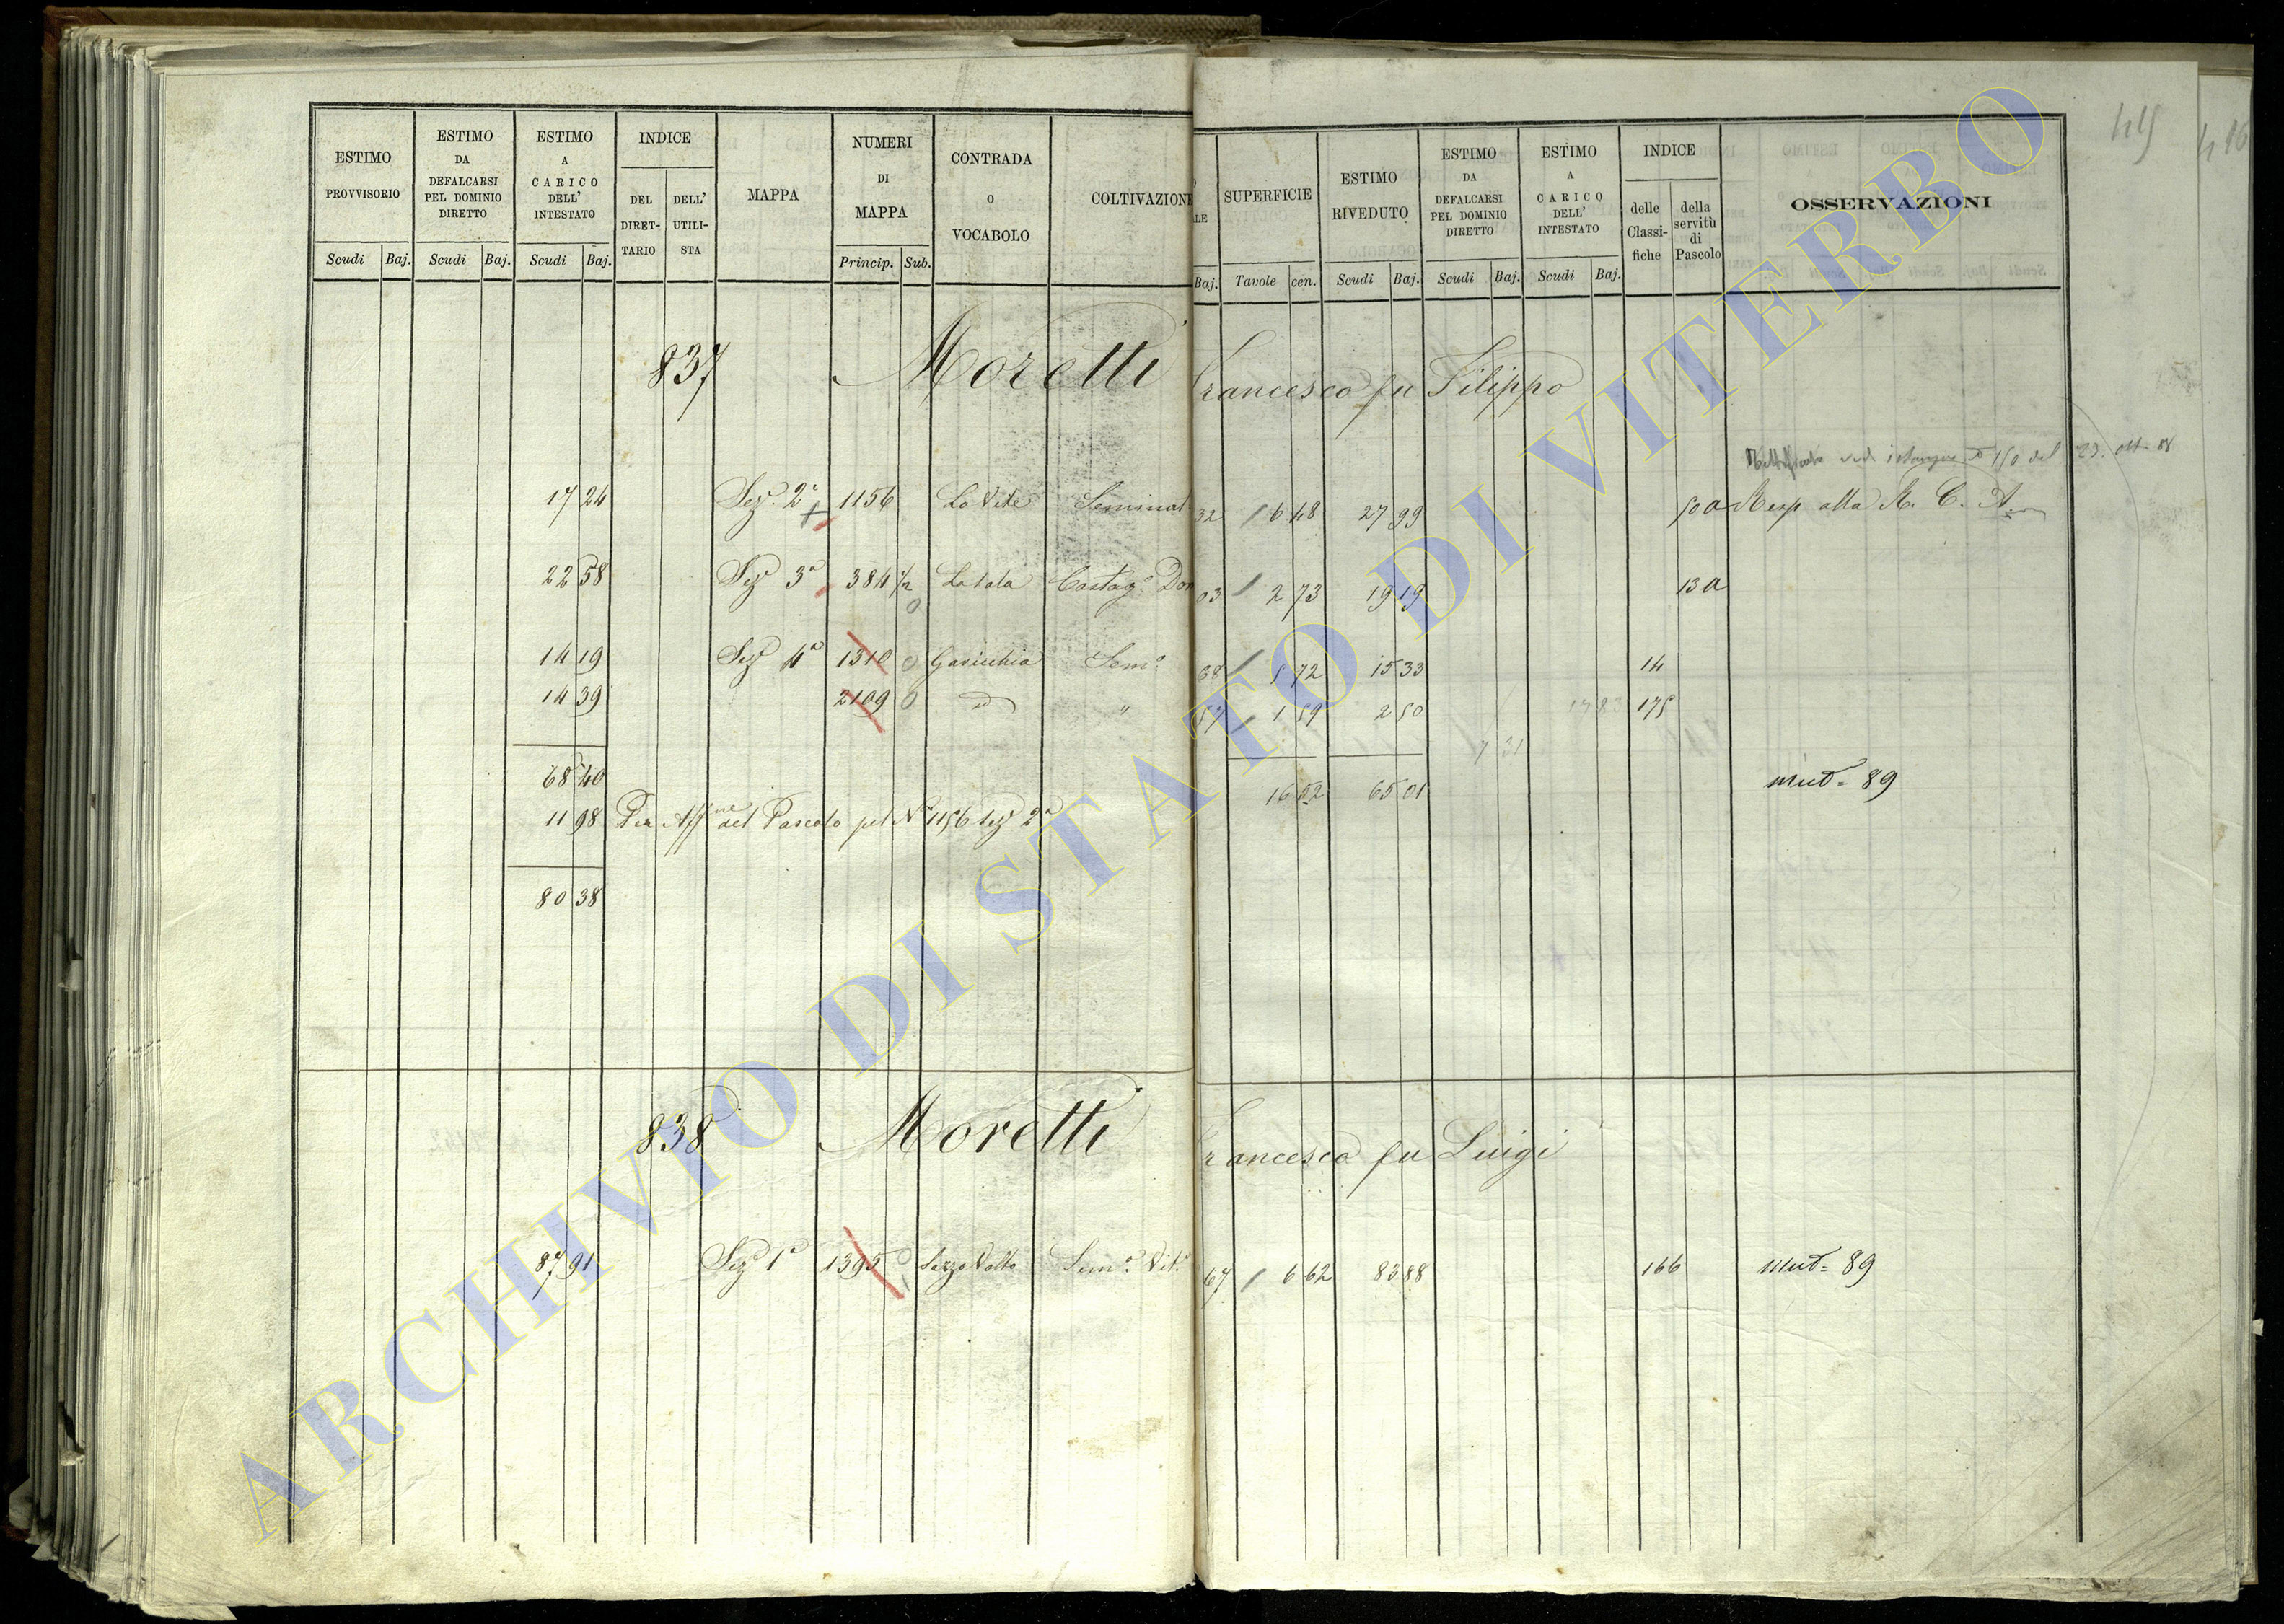 ESTIMO PROVVISORIO
Scudi Baj.
ESTIMO DA DEFALCARSI PEL DOMINIO DIRETTO
Scudi Baj.
ESTIMO A CARICO DELL' INTESTATO
Scudi Baj.
INDICE
DEL DIRET- TARIO
DELL' UTILI- STA
MAPPA
NUMERI DI MAPPA
Princip. Sub.
CONTRADA O VOCABOLO
COLTIVAZIONE
LE
Baj.
SUPERFICIE
Tavole cen.
ESTIMO RIVEDUTO
Scudi Baj.
ESTIMO DA DEFALCARSI PEL DOMINIO DIRETTO
Scudi Baj.
ESTIMO A CARICO DELL' INTESTATO
Scudi Baj.
INDICE
delle Classi- fiche
della servitù di Pascolo
OSSERVAZIONI
415
416
837 Moretti Francesco fu Filippo
150 del 23. ott. 88
17 24 Sez. 2ª 1156 La Vite Seminat 32 6 48 27 99 50 a Resp alla R. C. A.
22 58 Sez. 3ª 384 1/2 Castag. Dom 03 2 73 19 19 13 a
14 19 Sez. 4ª 1310 0 Sem. 38 5 72 15 33 14
14 39 2109 0 d " 57 1 59 2 50 17 83 175
7 31
68 40 16 52 65 01 mut = 89
11 98 Per Aff.ne del Pascolo pel N° 1156 sez 2ª
80 38
838 Moretti Francesco fu Luigi
87 91 Sez. 1ª 1395 Sem. Vit. 67 6 62 83 88 166 mut = 89
ARCHIVIO DI STATO DI VITERBO